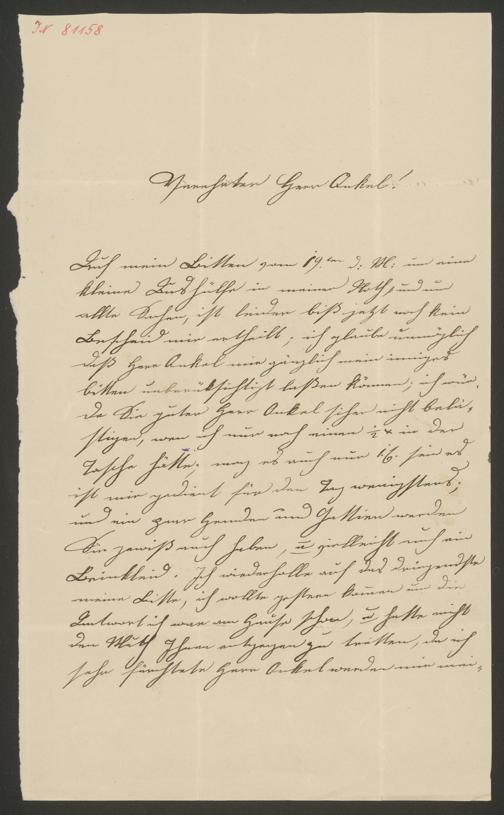 IN 81158
Verehrter Herr Onkel!
Auf mein Bitten vom 19.ten d: M: um eine
kleine Beihülfe in meiner Noth, und um
allte Sachen, ist leider biß jetzt noch kein
Bescheid mir ertheilt; ich glaube unmöglich
daß Herr Onkel mir gänzlich mein inniges
bitten unberüksichtigt laßen können; ich wür-
de Sie guter Herr Onkel sicher nicht belä-
stigen, wen ich nur noch einen ½ x in der
Tasche hätte. mag es auch nur sein es
ist mir gedient für den Tag wenigstens;
und ein paar Hemden und Gattien werden
Sie gewiß auch haben, u vielleicht auch ein
Beinkleid. Ich wiederholle auf das dringendste
meine Bitte, ich wollte gestern kommen um die
Antwort ich war am Hause schon, u hatte nicht
den Muth Ihnen entgegen zu tretten, da ich
sehr fürchtete Herr Onkel werden mir mei-